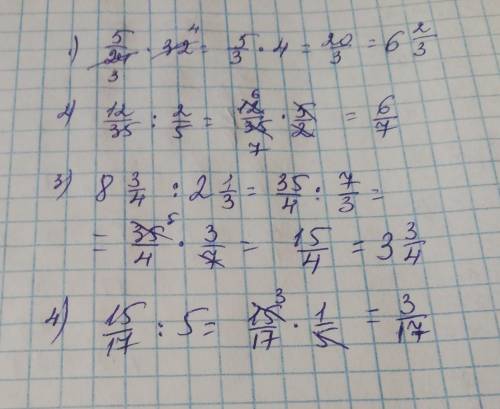 1) 5/24 · 32 4 = 5/3 · 4 = 20/3 = 6 2/3
3
2) 12/35 : 2/5 = 12 6/35 7 · 5/2 = 6/7
3) 8 3/4 : 2 1/3 = 35/4 : 7/3 =
= 35 5/4 · 3/7 = 15/4 = 3 3/4
4) 15/17 : 5 = 15 3/17 · 1/5 = 3/17